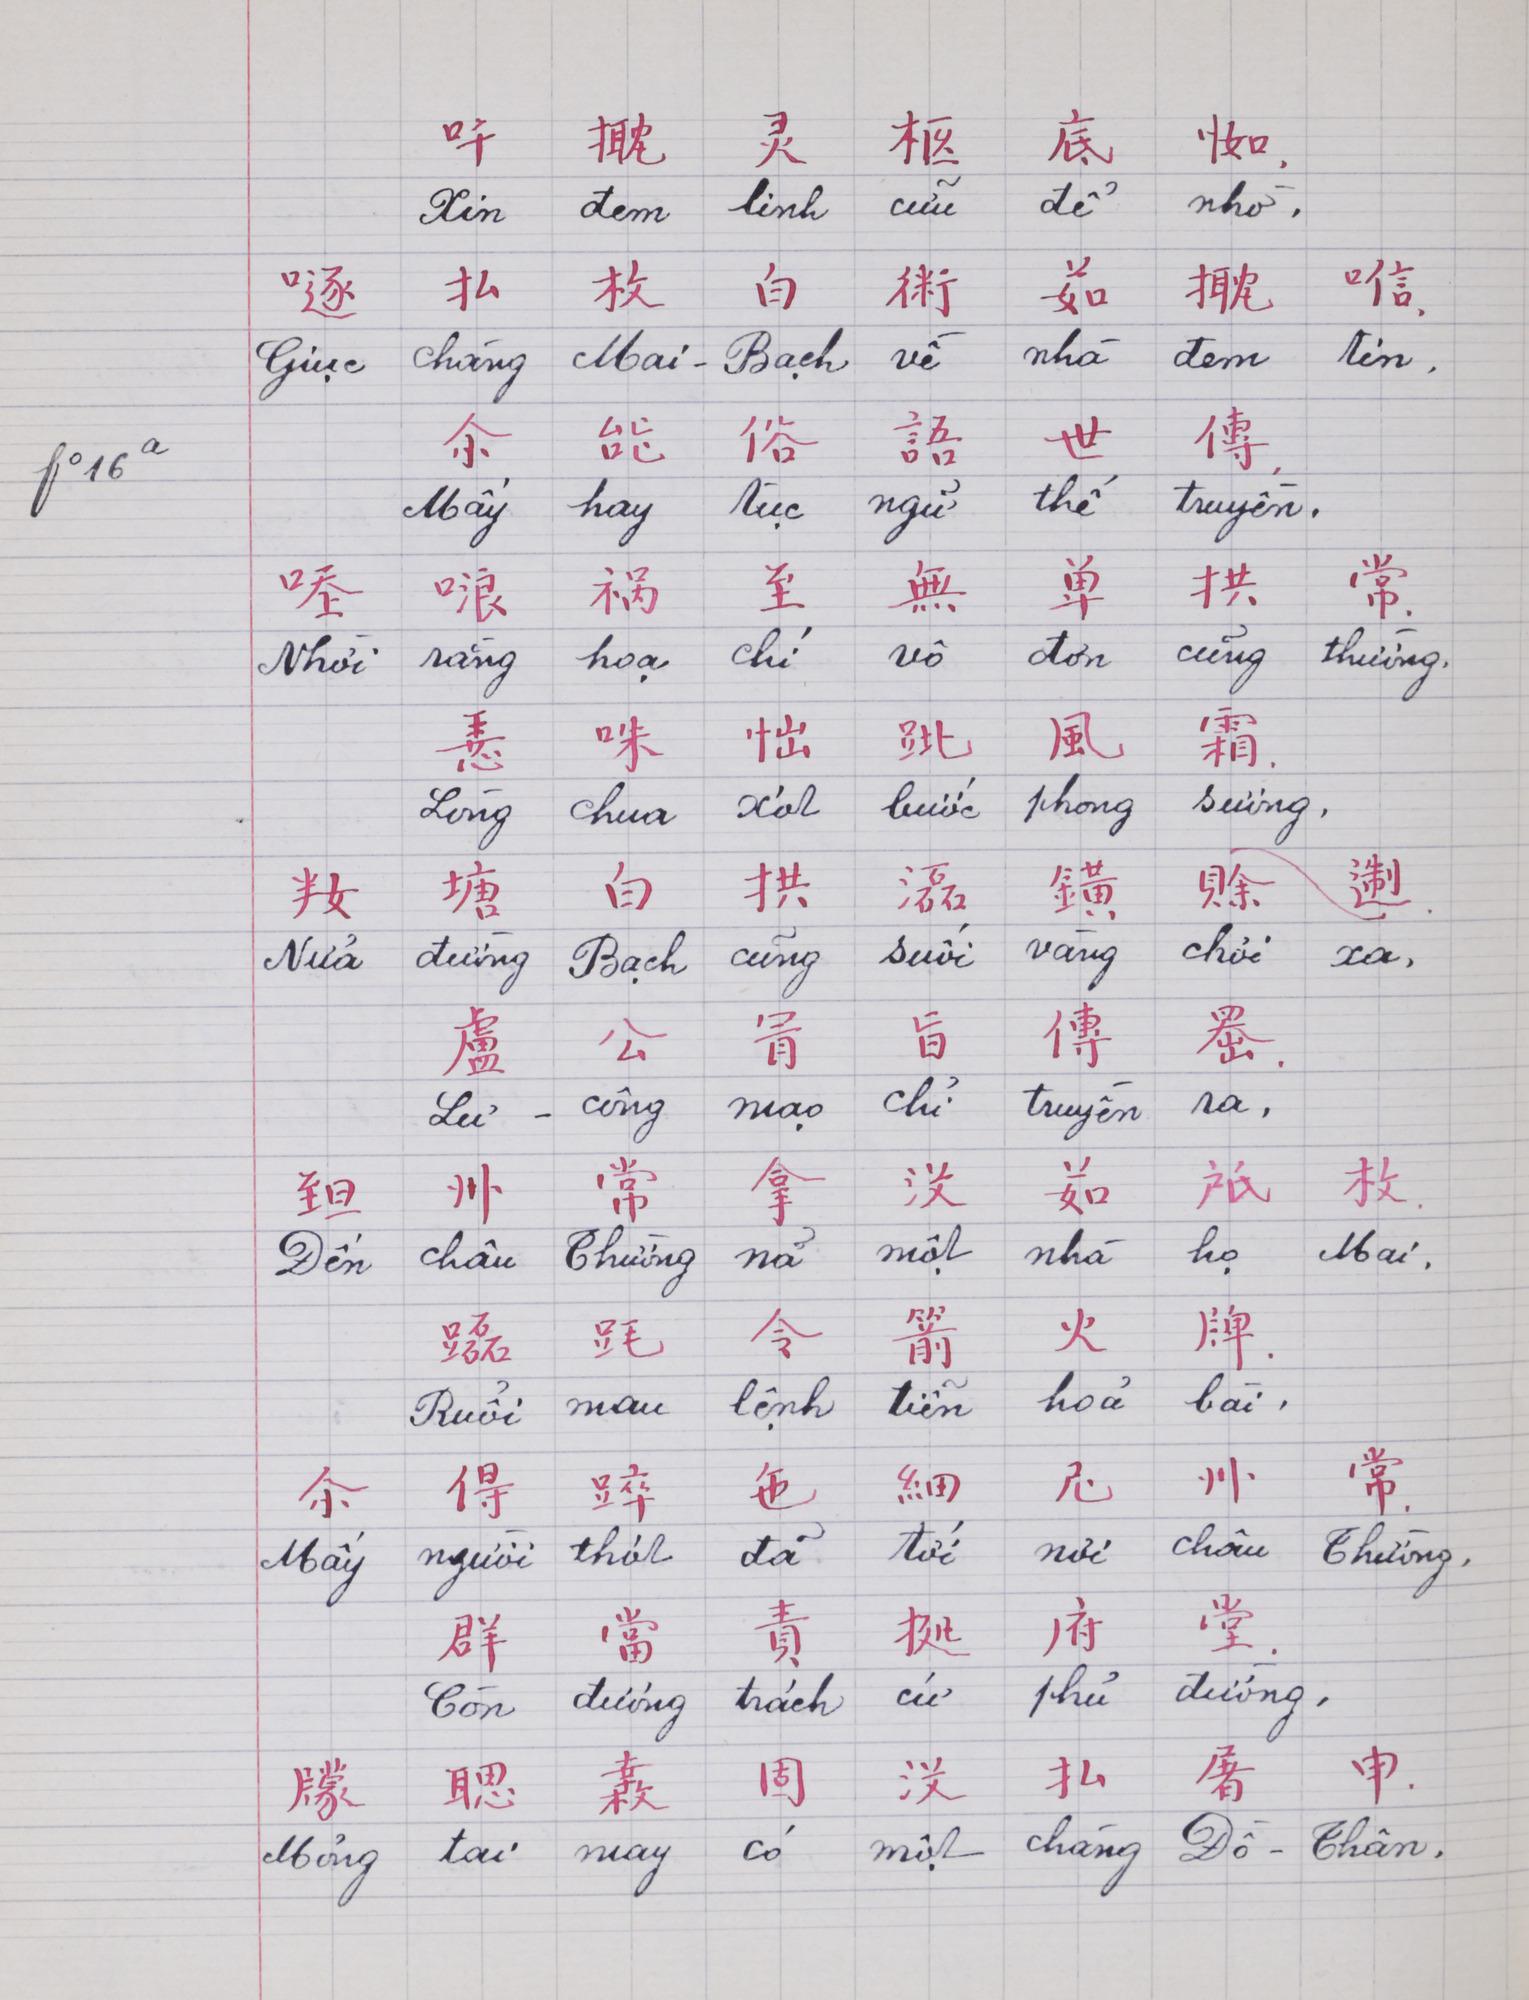 吁 𢬦 灵 柩 底 𢘾.
Xin đem linh cữu để nhờ,
𠽖 払 枚 白 術 茹 𢬦 㗂.
Giục chàng Mai - Bạch về nhà đem tin,
余 能 俗 語 世 傳.
fº 16ª
Mấy hay tục ngữ thế truyền,
哑 哴 祸 至 無 単 拱 常.
Nhời rằng hoạ chí vô đơn cũng thường,
咮 怞 𨀈 風 霜.
Lòng chua xót bước phong sương,
塘 白 拱 鐄 賒
Nửa đường Bạch cũng suối vàng chơi xa,
盧 公 旨 傳 𦋦.
Lư - công mạo chỉ truyền ra,
𦤾 州 常 拿 没 茹 枚.
Đến châu Thường nã một nhà họ Mai,
令 箭 火 牌.
Ruổi mau lệnh tiễn hoả bài,
余 得 踤 㐌 細 尼 州 常.
Mấy người thót đã tới nơi châu Thường,
群 當 責 拠 府 堂.
Còn đương trách cứ phủ đường,
聰 固 没 払 屠 申.
Mỏng tai may có một chàng Đồ - Thân.